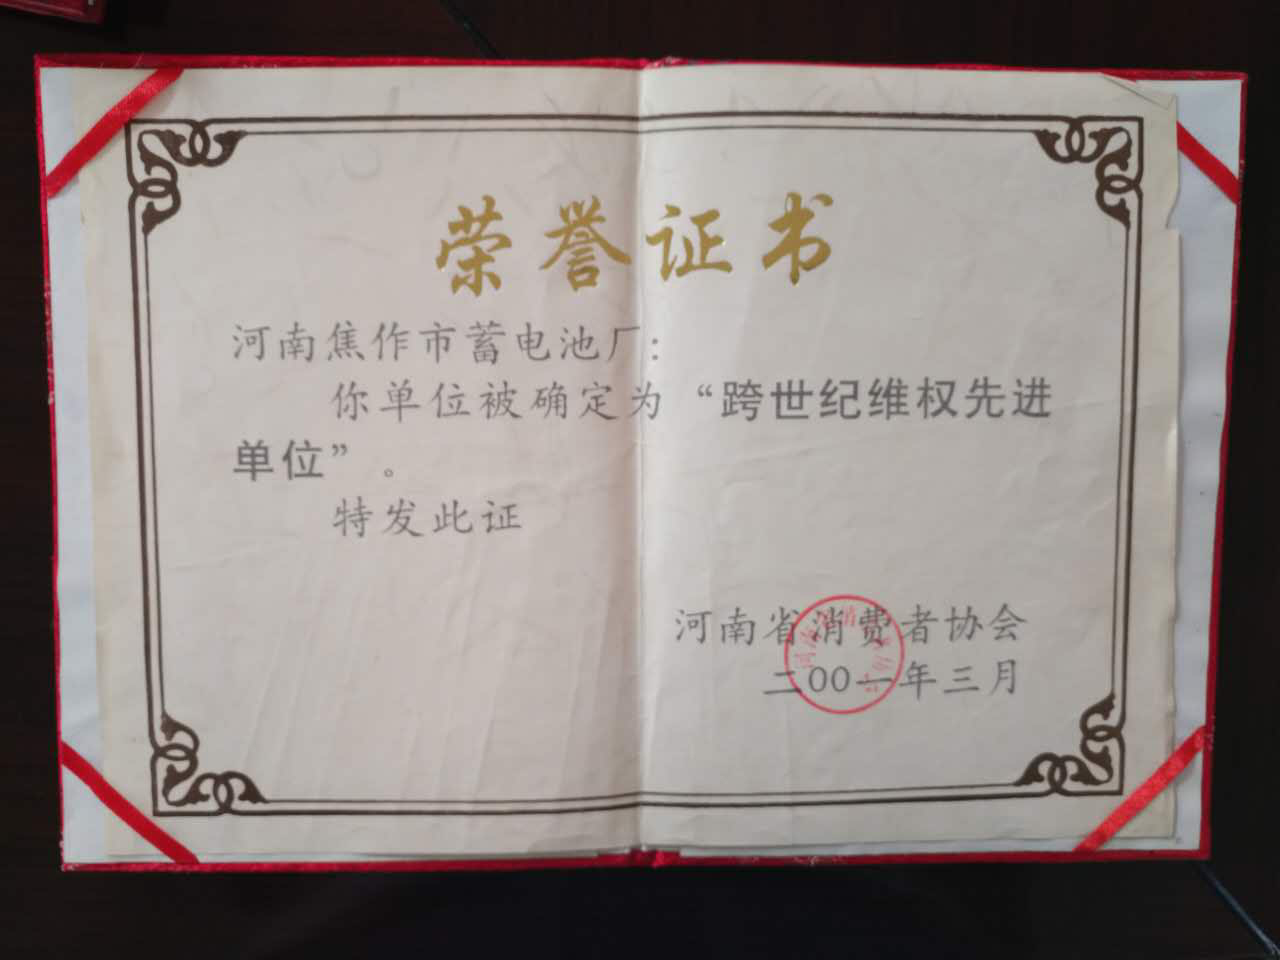 荣誉证书
河南焦作市蓄电池厂：
你单位被确定为“跨世纪维权先进
单位”。
特发此证
河南省消费者协会
二00一年三月